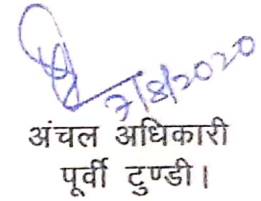 7/8/2020
अंचल अधिकारी
पूर्वी टुण्डी।